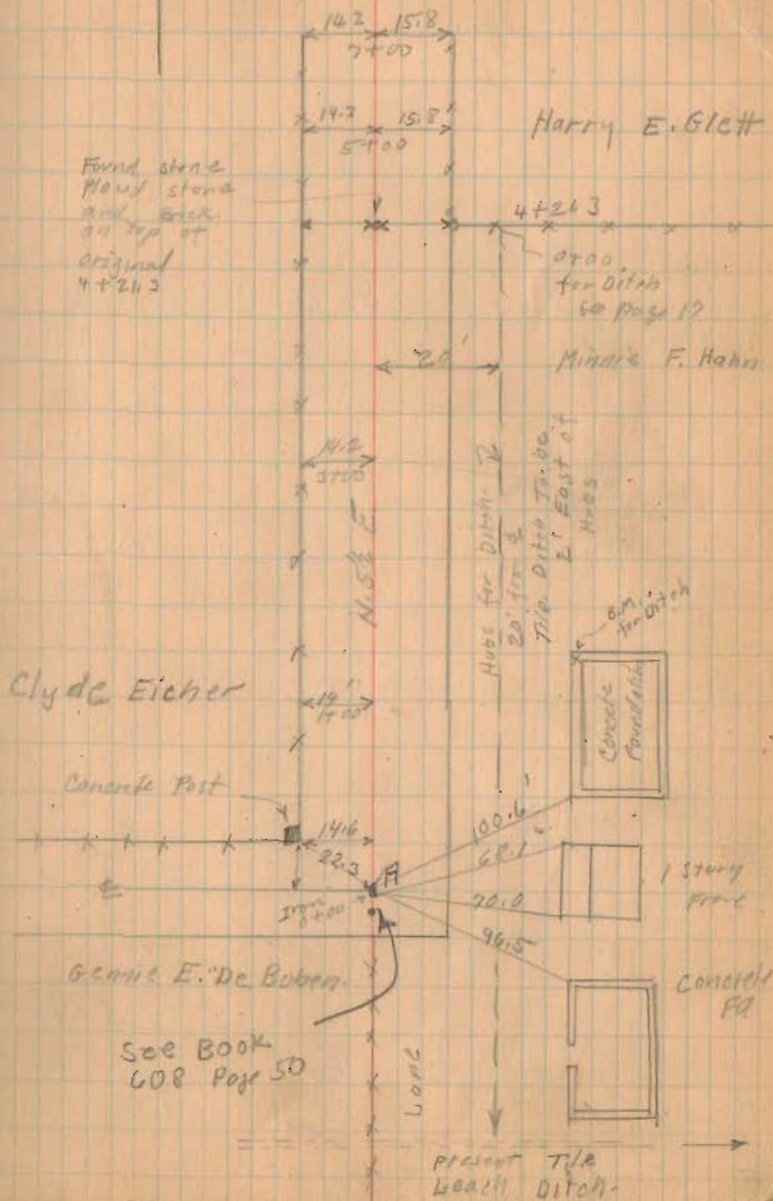 14.2 15.8
7+00
14.2 15.8'
5+00
Harry E. Glett
Found stone
Placed stone
and Brick
on top of
original
4+21.3
4+26 3
0+00
for Ditch
see page 17
20'
Minnie F. Hahn
14.2
3+00
N.5½ E
Hubs for Ditch
20' from ℄
Tile Ditch To be
2' East of
Hubs
B.M.
for Ditch
Concrete
Foundation
Clyde Eicher
14'
1+00
Concrete Post
14.6
22.3
100.6'
68.1'
70.0
96.5
A
℄
Iron
0+00
1 Story
Frame
Gennie E. De Buben.
Concrete
Fd
See Book
608 Page 50
Lane
present Tile
Leach Ditch.